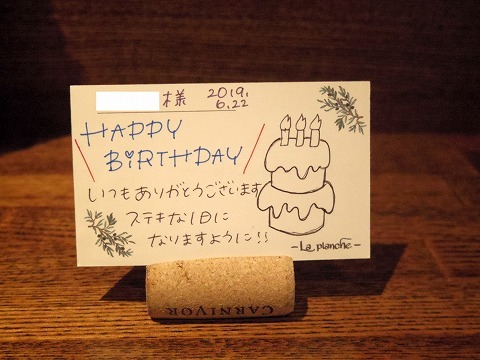 様 2019.
6.22
HAPPY
BiRTHDAY
いつもありがとうございます
ステキな1日に
なりますように!!
-La planche-
CARNIVOR